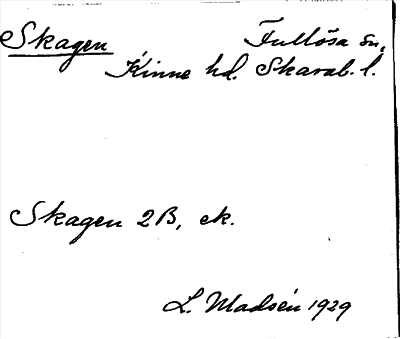 Skagen Fullösa sn,
Kinne hd. Skarab. l.
Skagen 2B, ek.
L. Madsén 1929